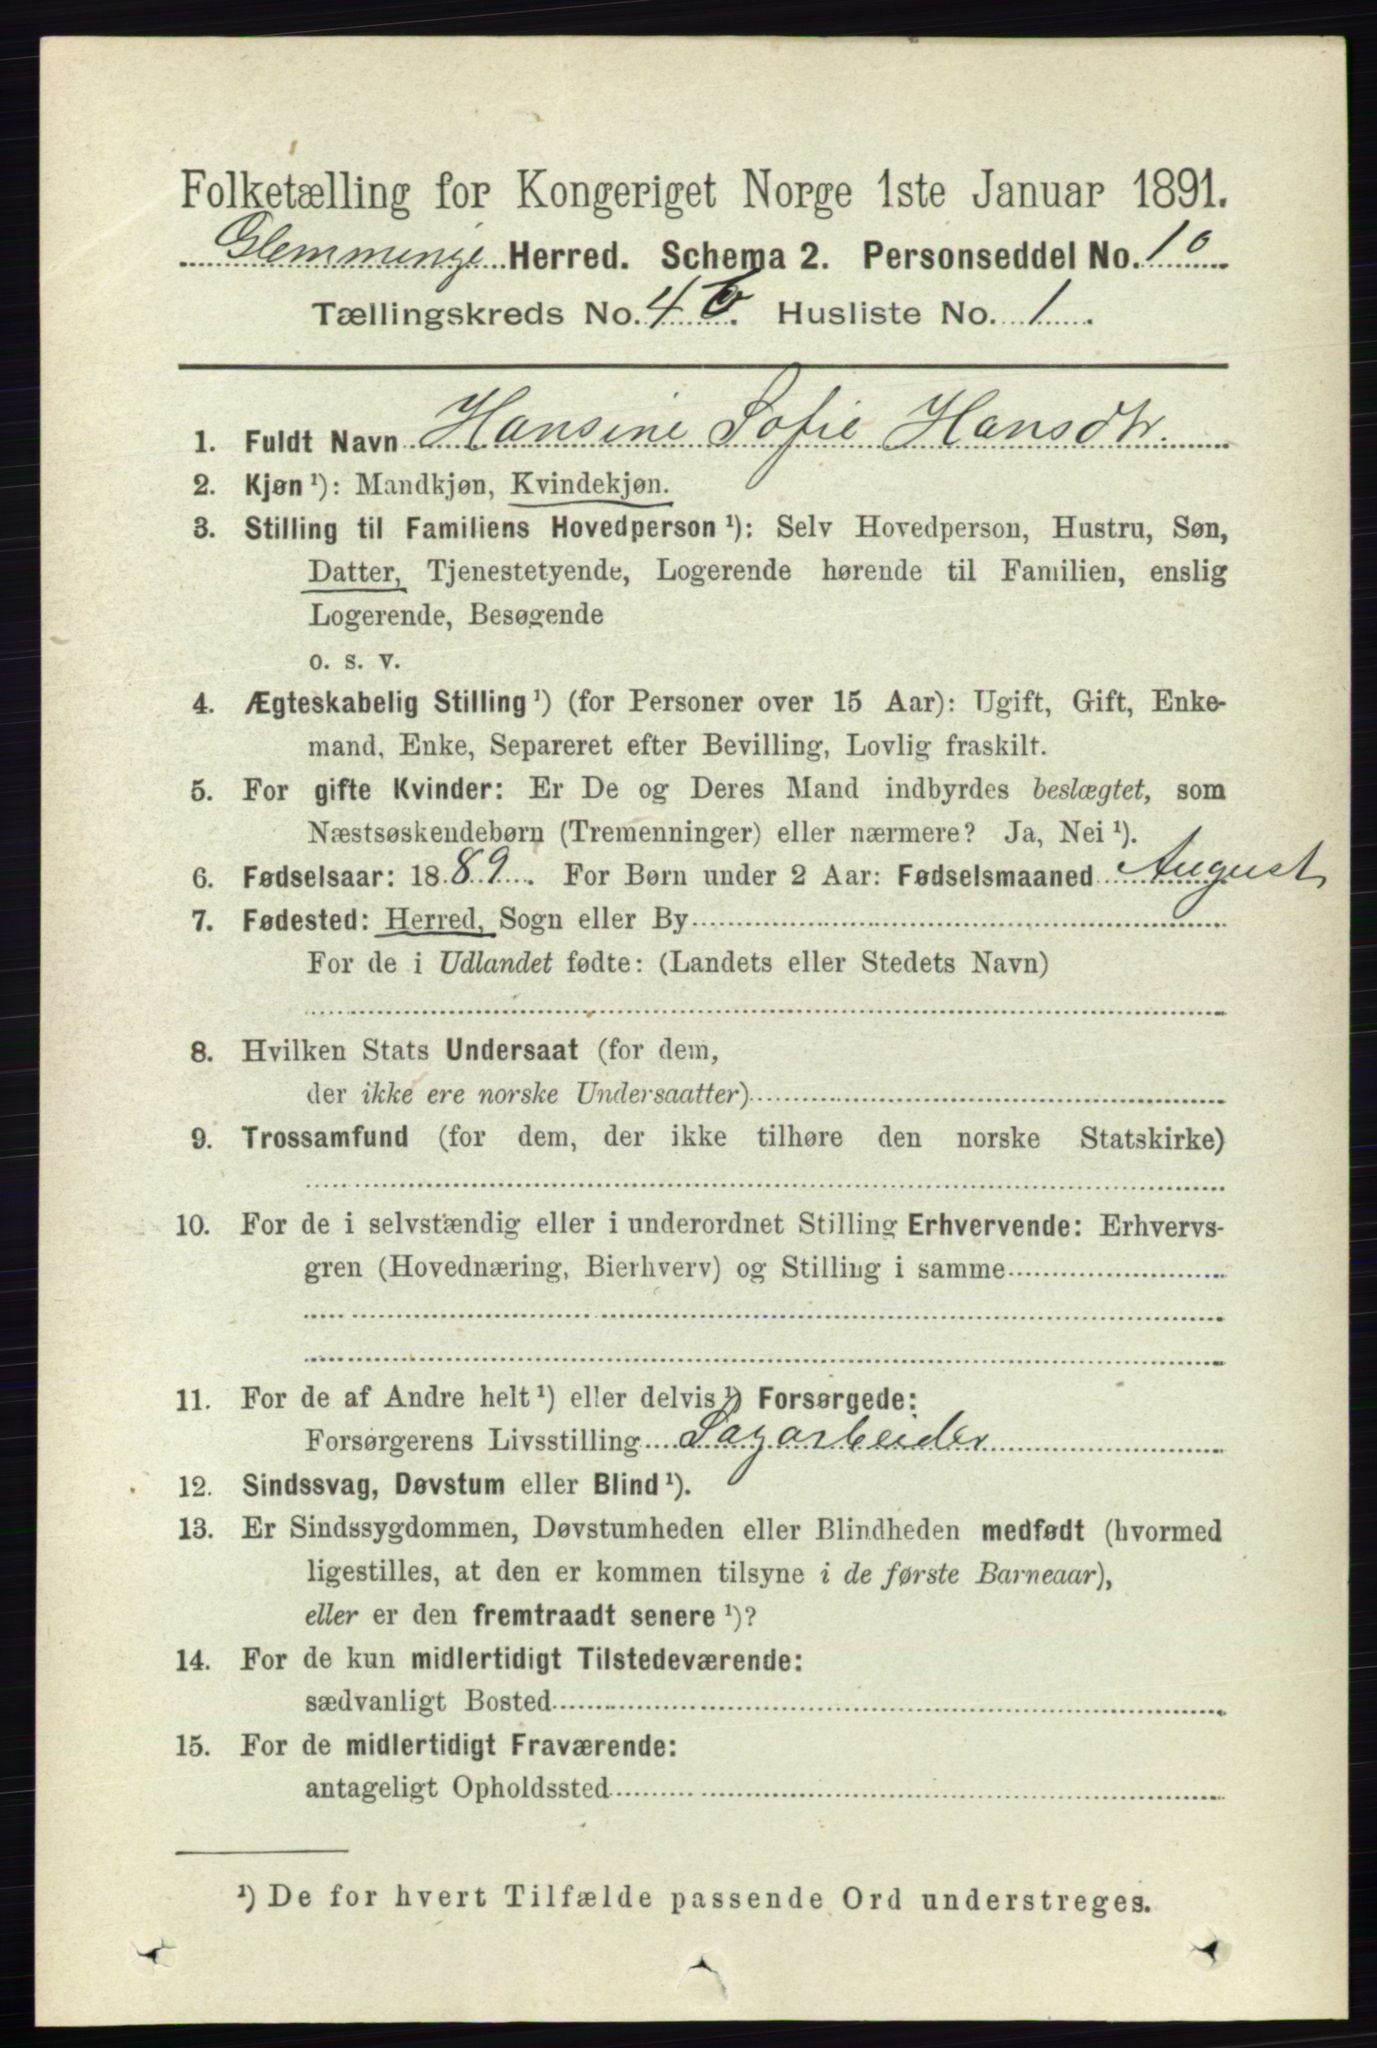 Folketælling for Kongeriget Norge 1ste Januar 1891.
Glemminge Herred. Schema 2. Personseddel No. 10
Tællingskreds No. 4 b. Husliste No. 1.
1. Fuldt Navn Hansine Sofie Hansdtr.
2. Kjøn ¹): Mandkjøn, Kvindekjøn.
3. Stilling til Familiens Hovedperson ¹): Selv Hovedperson, Hustru, Søn,
Datter, Tjenestetyende, Logerende hørende til Familien, enslig
Logerende, Besøgende
o. s. v.
4. Ægteskabelig Stilling ¹) (for Personer over 15 Aar): Ugift, Gift, Enke-
mand, Enke, Separeret efter Bevilling, Lovlig fraskilt.
5. For gifte Kvinder: Er De og Deres Mand indbyrdes beslægtet, som
Næstsøskendebørn (Tremenninger) eller nærmere? Ja, Nei ¹).
6. Fødselsaar: 1889. For Børn under 2 Aar: Fødselsmaaned August
7. Fødested: Herred, Sogn eller By
For de i Udlandet fødte: (Landets eller Stedets Navn)
8. Hvilken Stats Undersaat (for dem,
der ikke ere norske Undersaatter)
9. Trossamfund (for dem, der ikke tilhøre den norske Statskirke)
10. For de i selvstændig eller i underordnet Stilling Erhvervende: Erhvervs-
gren (Hovednæring, Bierhverv) og Stilling i samme
11. For de af Andre helt ¹) eller delvis ¹) Forsørgede:
Forsørgerens Livsstilling Sagarbeider
12. Sindssvag, Døvstum eller Blind ¹).
13. Er Sindssygdommen, Døvstumheden eller Blindheden medfødt (hvormed
ligestilles, at den er kommen tilsyne i de første Barneaar),
eller er den fremtraadt senere ¹)?
14. For de kun midlertidigt Tilstedeværende:
sædvanligt Bosted
15. For de midlertidigt Fraværende:
antageligt Opholdssted
¹) De for hvert Tilfælde passende Ord understreges.